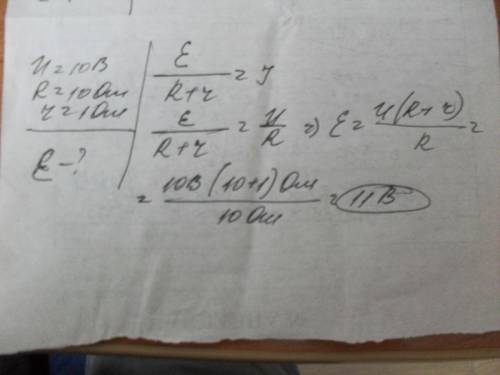 U = 10В
R = 10 Ом
r = 1 Ом
ε - ?
ε / (R + r) = I
ε / (R + r) = U / R => ε = U(R + r) / R =
= 10В (10 + 1) Ом / 10 Ом = 11В